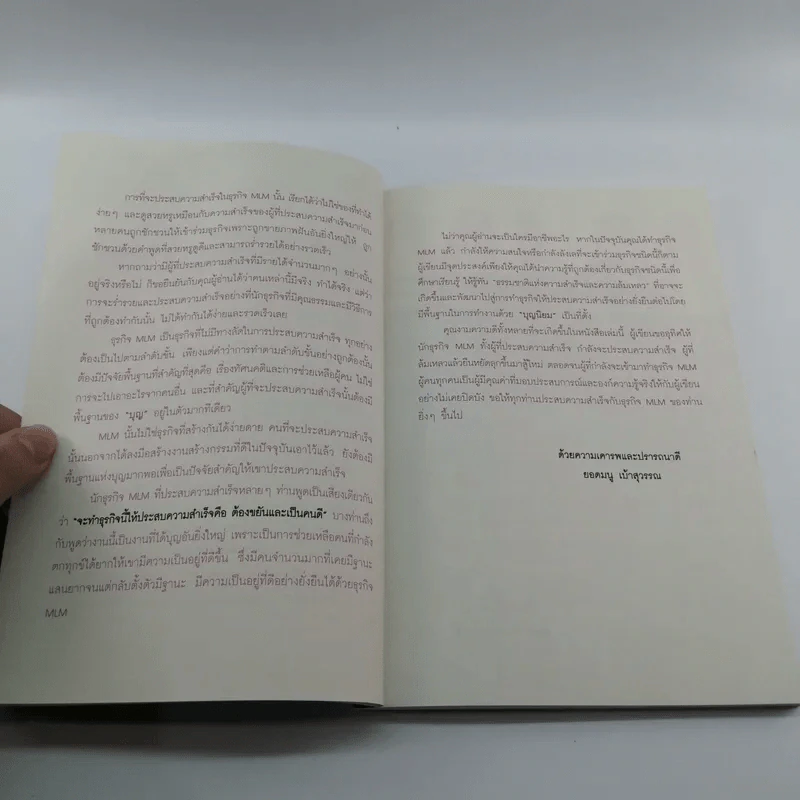 การที่จะประสบความสำเร็จในธุรกิจ MLM นั้น เรียกได้ว่าไม่ใช่ของที่ทำได้
ง่ายๆ และดูสวยหรูเหมือนกับความสำเร็จของผู้ที่ประสบความสำเร็จมาก่อน
หลายคนถูกชักชวนให้เข้าร่วมธุรกิจเพราะถูกขายภาพฝันอันยิ่งใหญ่ให้ ถูก
ชักชวนด้วยคำพูดที่สวยหรูดูดีและสามารถร่ำรวยได้อย่างรวดเร็ว
หากถามว่ามีผู้ที่ประสบความสำเร็จที่มีรายได้จำนวนมากๆ อย่างนั้น
อยู่จริงหรือไม่ ก็ขอยืนยันกับคุณผู้อ่านได้ว่าคนเหล่านี้มีจริง ทำได้จริง แต่ว่า
การจะร่ำรวยและประสบความสำเร็จอย่างที่นักธุรกิจที่มีคุณธรรมและมีวิธีการ
ที่ถูกต้องทำกันนั้น ไม่ได้ทำกันได้ง่ายและรวดเร็วเลย
ธุรกิจ MLM เป็นธุรกิจที่ไม่มีทางลัดในการประสบความสำเร็จ ทุกอย่าง
ต้องเป็นไปตามลำดับขั้น เพียงแต่คำว่าการทำตามลำดับขั้นอย่างถูกต้องนั้น
ต้องมีปัจจัยพื้นฐานที่สำคัญที่สุดคือ เรื่องทัศนคติและการช่วยเหลือผู้คน ไม่ใช่
การจะไปเอาอะไรจากคนอื่น และที่สำคัญผู้ที่จะประสบความสำเร็จนั้นต้องมี
พื้นฐานของ "บุญ" อยู่ในตัวมากทีเดียว
MLM นั้นไม่ใช่ธุรกิจที่สร้างกันได้ง่ายดาย คนที่จะประสบความสำเร็จ
นั้นนอกจากได้ลงมือสร้างงานสร้างกรรมที่ดีในปัจจุบันเอาไว้แล้ว ยังต้องมี
พื้นฐานแห่งบุญมากพอเพื่อเป็นปัจจัยสำคัญให้เขาประสบความสำเร็จ
นักธุรกิจ MLM ที่ประสบความสำเร็จหลายๆ ท่านพูดเป็นเสียงเดียวกัน
ว่า "จะทำธุรกิจนี้ให้ประสบความสำเร็จคือ ต้องขยันและเป็นคนดี" บางท่านถึง
กับพูดว่างานนี้เป็นงานที่ได้บุญอันยิ่งใหญ่ เพราะเป็นการช่วยเหลือคนที่กำลัง
ตกทุกข์ได้ยากให้เขามีความเป็นอยู่ที่ดีขึ้น ซึ่งมีคนจำนวนมากที่เคยมีฐานะ
แสนยากจนแต่กลับตั้งตัวมีฐานะ มีความเป็นอยู่ที่ดีอย่างยั่งยืนได้ด้วยธุรกิจ
MLM
ไม่ว่าคุณผู้อ่านจะเป็นใครมีอาชีพอะไร หากในปัจจุบันคุณได้ทำธุรกิจ
MLM แล้ว กำลังให้ความสนใจหรือกำลังลังเลที่จะเข้าร่วมธุรกิจชนิดนี้ก็ตาม
ผู้เขียนมีจุดประสงค์เพียงให้คุณได้นำความรู้ที่ถูกต้องเกี่ยวกับธุรกิจชนิดนี้เพื่อ
ศึกษาเรียนรู้ ให้รู้ทัน "ธรรมชาติแห่งความสำเร็จและความล้มเหลว" ที่อาจจะ
เกิดขึ้นและพัฒนาไปสู่การทำธุรกิจให้ประสบความสำเร็จอย่างยั่งยืนต่อไปโดย
มีพื้นฐานในการทำงานด้วย "บุญนิยม" เป็นที่ตั้ง
คุณงามความดีทั้งหลายที่จะเกิดขึ้นในหนังสือเล่มนี้ ผู้เขียนขออุทิศให้
นักธุรกิจ MLM ทั้งผู้ที่ประสบความสำเร็จ กำลังจะประสบความสำเร็จ ผู้ที่
ล้มเหลวแล้วยืนหยัดลุกขึ้นมาสู้ใหม่ ตลอดจนผู้ที่กำลังจะเข้ามาทำธุรกิจ MLM
ผู้คนทุกคนเป็นผู้มีคุณค่าที่มอบประสบการณ์และองค์ความรู้จริงให้กับผู้เขียน
อย่างไม่เคยปิดบัง ขอให้ทุกท่านประสบความสำเร็จกับธุรกิจ MLM ของท่าน
ยิ่งๆ ขึ้นไป
ด้วยความเคารพและปรารถนาดี
ยอดมนู เบ้าสุวรรณ